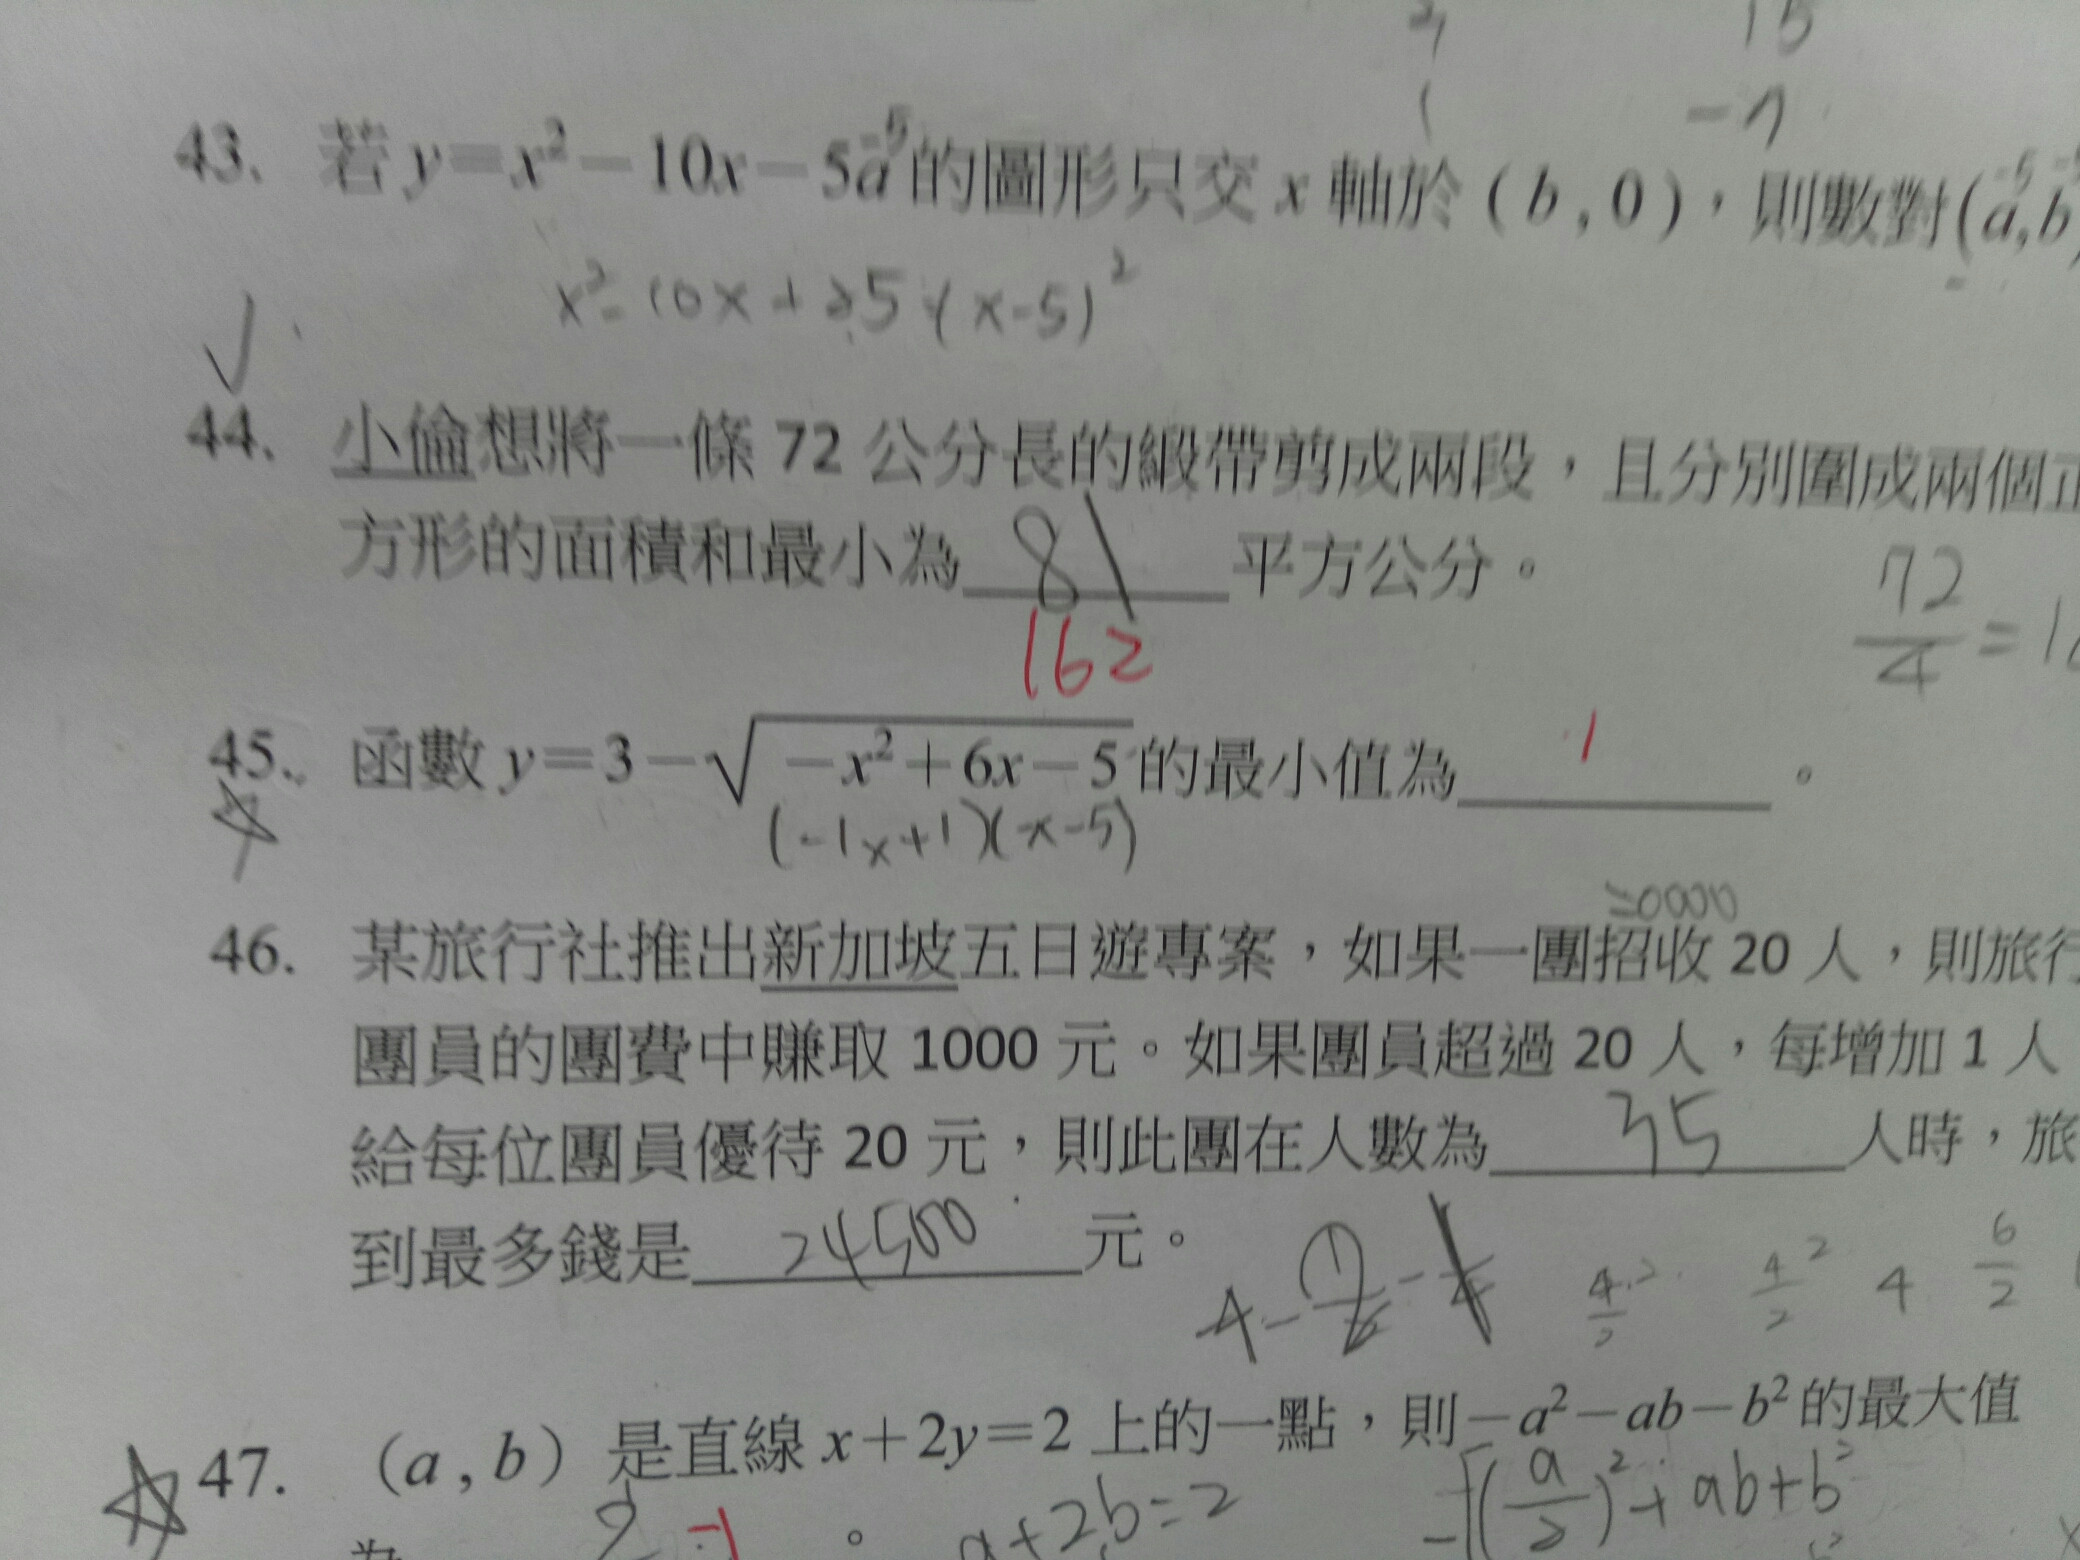 15
1 -7
-5
43. 若 y=x²-10x-5a 的圖形只交 x 軸於 (b,0),則數對(a,b)
x²-10x+25 (x-5)²
44. 小倫想將一條 72 公分長的緞帶剪成兩段,且分別圍成兩個正
方形的面積和最小為 81 平方公分。
162
72/4=1
45. 函數 y=3-√(-x²+6x-5) 的最小值為 1 。
(-1x+1)(x-5)
46. 某旅行社推出新加坡五日遊專案,如果一團招收 20 人,則旅行
團員的團費中賺取 1000 元。如果團員超過 20 人,每增加 1 人
給每位團員優待 20 元,則此團在人數為 35 人時,旅
到最多錢是 24500 元。
4 6/2
47. (a,b) 是直線 x+2y=2 上的一點,則-a²-ab-b² 的最大值
為 -1 。 a+2b=2
-[(a/2)²+ab+b²